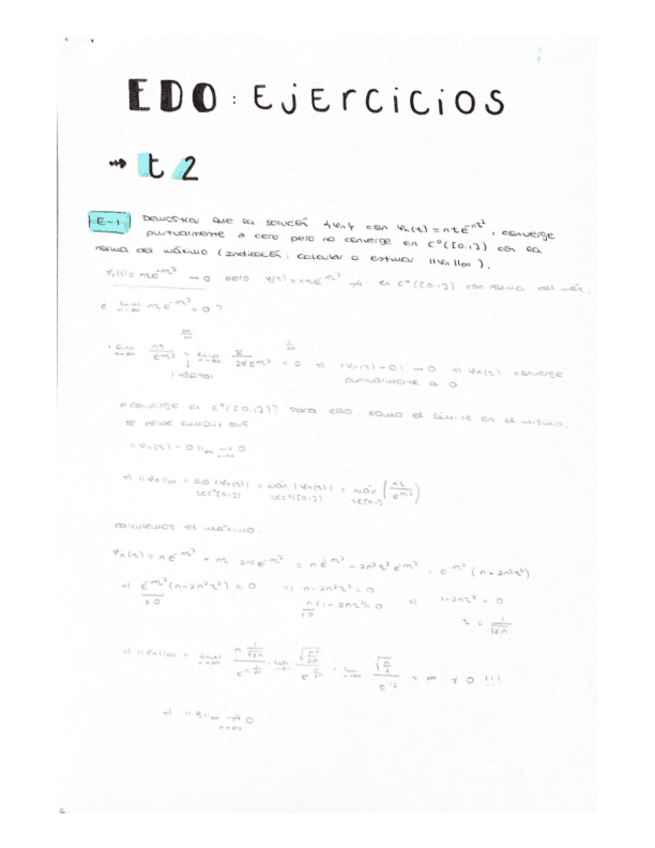 EDO: EJERCICIOS
t 2
E-1 Demostrar que la sucesión {φn} con φn(t) = nte^-nt², converge
puntualmente a cero pero no converge en C⁰([0,1]) con la
norma del máximo (Indicación: calcular o estimar ||φn||∞).
φn(t) = nte^-nt² → 0 pero φn(t) = nte^-nt² ↛ en C⁰([0,1]) con norma del máx.
¿ lim n→∞ nte^-nt² = 0 ?
lim n→∞ nt / e^nt² = lim n→∞ t / t²e^nt² = 0 ⇒ |φn(t) - 0| → 0 ⇒ φn(t) converge
L'Hôpital puntualmente a 0
¿converge en C⁰([0,1])? Para ello, como el límite es el mismo,
se debe cumplir que
||φn(t) - 0||∞ → 0 n→∞
⇒ ||φn||∞ = sup |φn(t)| = máx |φn(t)| = máx (nt / e^nt²)
calculemos el máximo:
φ'n(t) = ne^-nt² - nt 2nte^-nt² = ne^-nt² - 2n²t²e^-nt² = e^-nt² (n - 2n²t²)
⇒ e^-nt² (n - 2n²t²) = 0 ⇒ n - 2n²t² = 0
≠ 0 n(1 - 2nt²) = 0 ⇒ 1 - 2nt² = 0
≠ 0 t = 1/√2n
⇒ ||φn||∞ = lim n→∞ n 1/√2n / e^n 1/2n = lim n→∞ √n²/2n / e^n/2n = lim n→∞ √n/2 / e^1/2 = ∞ ≠ 0 !!!
⇒ ||φn||∞ ↛ 0 n→∞